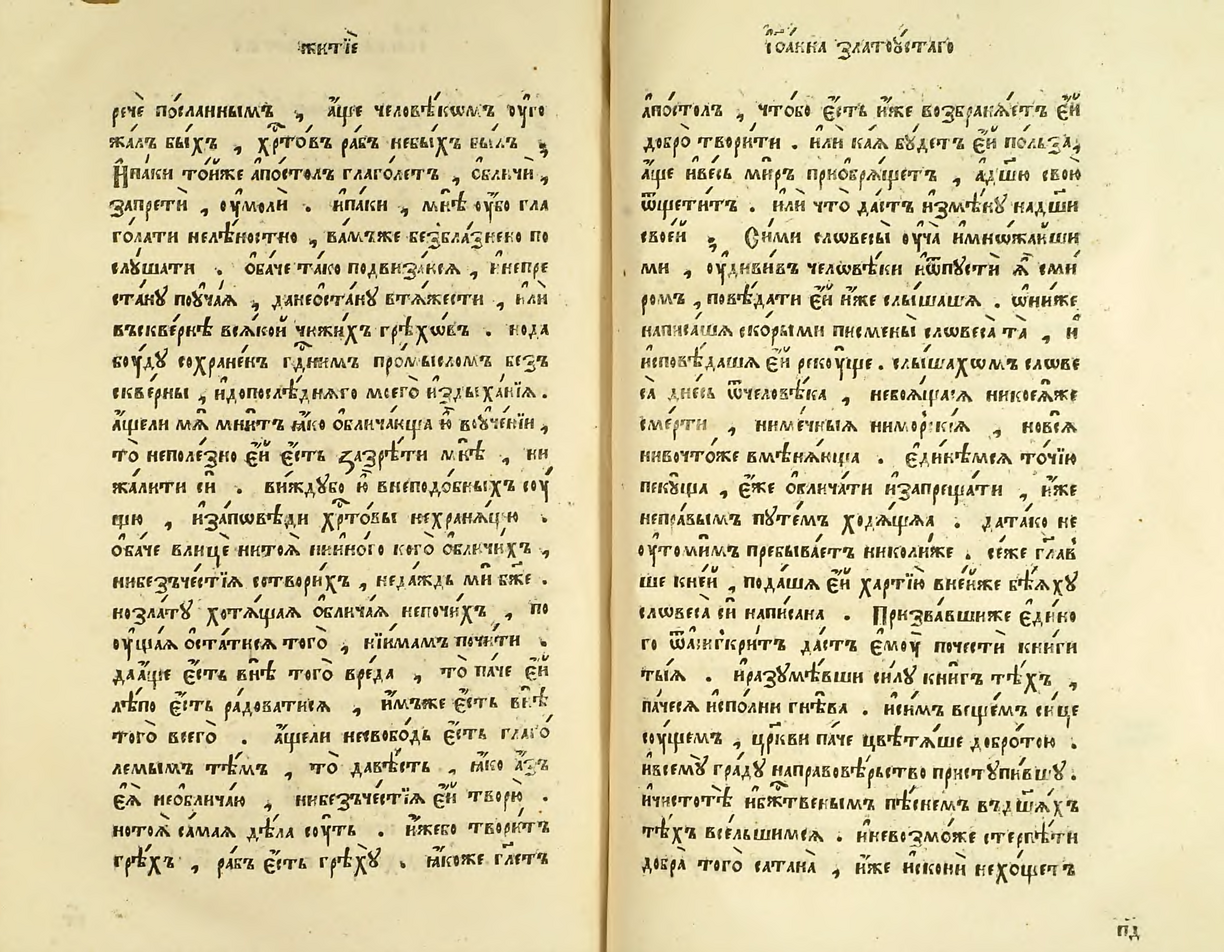 житїѐ
речѐ по́сланнымъ , а҆́ще человѣ́кѡмъ ᲂу҆го
жалъ бы́хъ , хр҇то́въ рабъ небы́хъ бы́лъ ,
И҆па́ки то́йже а҆по́столъ глаго́летъ , ѡ҆бличѝ ,
запретѝ , ᲂу҆молѝ . и҆па́ки , мнѣ̀ ᲂу҆́бо гла
го́лати нелѣ́ностно , ва́мъже безбла́знено по
слꙋ́шати . ѻ҆ба́че та́ко подвиза́юсѧ , и҆непре
ста́нꙋ поꙋча́ѧ , данеѡста́нꙋ втѧ́жести , и҆лѝ
въскве́рнѣ всѧ́кой чꙋжи́хъ грѣхѡ́въ . нода
боу́дꙋ сохране́нъ гдⷭ҇нимъ про́мысломъ безъ
скве́рны , и҆допослѣ́днѧго моегѡ̀ и҆здыха́нїѧ .
а҆́щели мѧ̀ мни́тъ ꙗ҆́кѡ ѻ҆блича́юща ю҆̀ воꙋче́нїи ,
то̀ неполе́зно є҆́й є҆́сть зазрѣ́ти мнѣ̀ , ни
жа́лити сѝ . ви́ждꙋбо ю҆̀ внеподо́бныхъ соу́
щꙋю , и҆за́пѡвѣди хр҇то́вы нехранѧ́щꙋю .
ѻ҆ба́че влицѐ нитоѧ̀ нии҆но́го кого̀ ѻ҆бличи́хъ ,
нибезъче́стїѧ сотвори́хъ , неда́ждь мѝ бж҃е .
нозла́тꙋ хотѧ́щаѧ ѻ҆блича́ѧ непочи́хъ , по
ᲂу҆ща́ѧ ѻ҆ста́тисѧ того̀ , нїи҆́мамъ почи́ти .
даа҆́ще є҆́сть внѣ̀ того̀ вре́да , то̀ па́че є҆́й
лѣ́по є҆́сть ра́доватисѧ , и҆́мъже є҆́сть внѣ̀
того̀ всего̀ . а҆́щели несвобо́дь є҆́сть глаго́
лемымъ тѣ́мъ , то̀ давѣ́сть , ꙗ҆́кѡ а҆́зъ
є҆ѧ̀ необлича́ю , нибезъче́стїѧ є҆́й творю̀ .
нотоѧ̀ са́маѧ дѣла̀ соу́ть . и҆́жебо твори́тъ
грѣ́хъ , рабъ є҆́сть грѣхꙋ̀ . ꙗ҆́коже гл҃етъ
і҆ѡа́нна златоу́стаго
а҆по́столъ , что́бо є҆́сть и҆́же возбранѧ́етъ є҆́й
добрѐ твори́ти . и҆лѝ ка́ѧ бꙋ́детъ є҆́й по́льза ,
а҆́ще и҆ве́сь ми́ръ прио҆брѧ́щетъ , а҆дш҃ꙋ свою̀
ѿщети́тъ . и҆лѝ что̀ да́стъ и҆змѣ́нꙋ надш҃и
свое́й ; Си́ми словесы̀ ᲂу҆ча̀ и҆мно́жайши
ми , ᲂу҆диви́въ человѣ́ки и҆ѿпꙋстѝ ѧ҆̀ сми́
ромъ , повѣ́дати є҆́й и҆́же слы́шашѧ . ѻ҆ни́же
написа́шѧ ско́рыми писмены̀ словеса̀ та̀ , и҆
и҆сповѣ́дашѧ є҆́й реко́уще . слы́шахѡмъ слѡве
са̀ дне́сь ѿчеловѣ́ка , небоѧ́щасѧ никоеѧ́же
сме́рти , ниме́чныѧ нимо́рскїѧ , но́всѧ
нивочто́же вмѣнѧ́юща . є҆ди́нѣмсѧ то́чїю
пекꙋ́ща , є҆́же ѻ҆блича́ти и҆запреща́ти , и҆́же
непра́вымъ пꙋте́мъ ходѧ́щѧѧ . дата́ко не
ᲂу҆томи́мъ пребыва́етъ николи́же . се́же глав
ше кне́й , пода́шѧ є҆́й ха́ртїю вне́йже бѣ́ѧхꙋ
словеса̀ сѝ напи́сана . Призва́вшиже є҆ди́но
го ѿа҆сиг҇критъ да́стъ є҆моу̀ почестѝ кни́ги
ты́ѧ . и҆разꙋмѣ́вши си́лꙋ кни́гъ тѣ́хъ ,
па́чесѧ и҆спо́лни гнѣ́ва . и҆си́мъ ве́щемъ си́це
соу́щемъ , цр҃кви па́че цвѣтѧ́ше добро́тою .
и҆всемꙋ̀ гра́дꙋ направовѣ́рьство пристꙋпи́вшꙋ .
и҆чистотѣ̀ и҆бжⷭ҇твенымъ пѣ́снемъ въдш҃ѧ́хъ
тѣ́хъ всельши́мсѧ . и҆невозмо́же стерпѣ́ти
добра̀ того̀ сатана̀ , и҆́же и҆сконѝ нехо́щетъ
пд